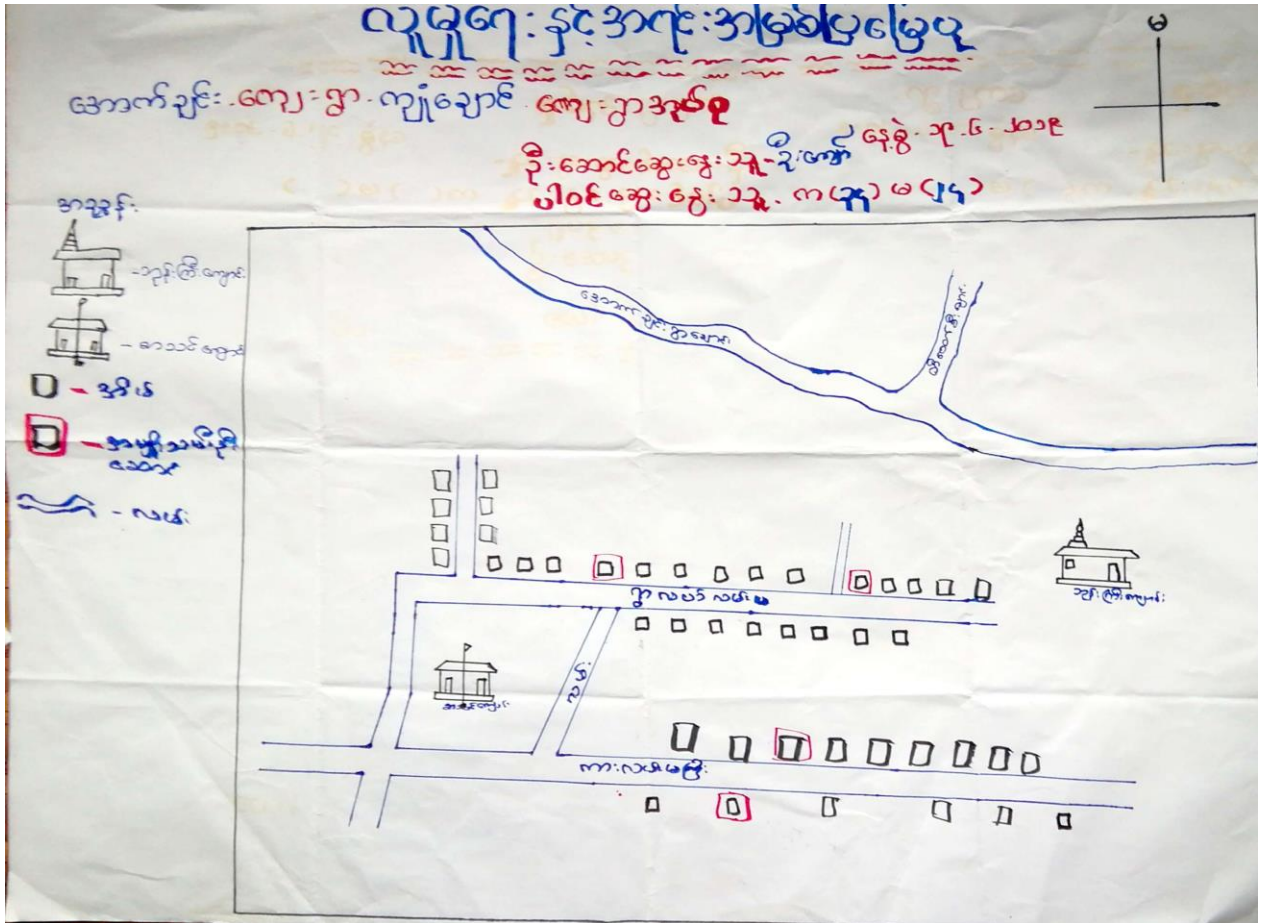 လူမှုရေး နှင့် အရင်းအမြစ်ပြမြေပုံ
မ
အောက်ချင်း ကျေးရွာ ကျုံချောင် ကျေးရွာအုပ်စု
နေ့စွဲ - ၁၉ - ၆ - ၂၀၁၉
ဦးဆောင်ဆွေးနွေးသူ - ဦးကျော်
ပါဝင်ဆွေးနွေးသူ
အညွှန်း
- ဘုန်းကြီးကျောင်း
- စာသင်ကျောင်း
- အိမ်
- အမျိုးသမီးဦး
ဆောင်
- လမ်း
အောက်ချင်းရွာချောင်း
ရွာလယ်လမ်းမ
ဘုန်းကြီးကျောင်း
စာသင်ကျောင်း
ကားလမ်းမကြီး